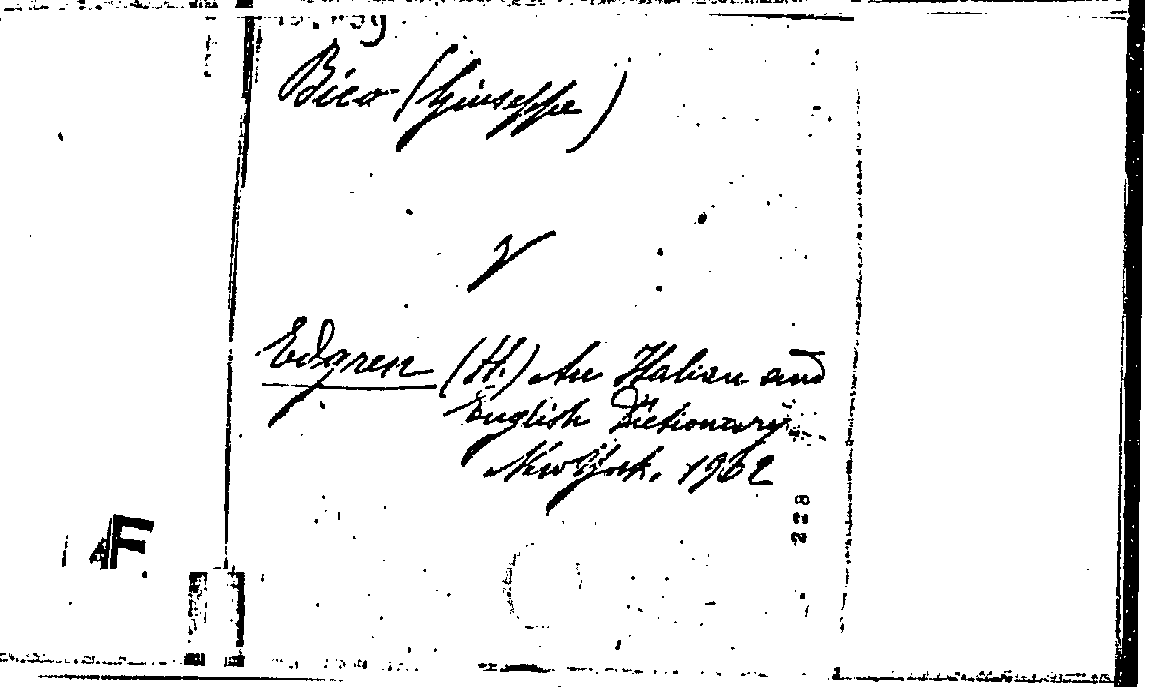 Bico (Giuseppe)
V
Edgren (H.) An Italian and
English Dictionary
New York. 1902
228
AF